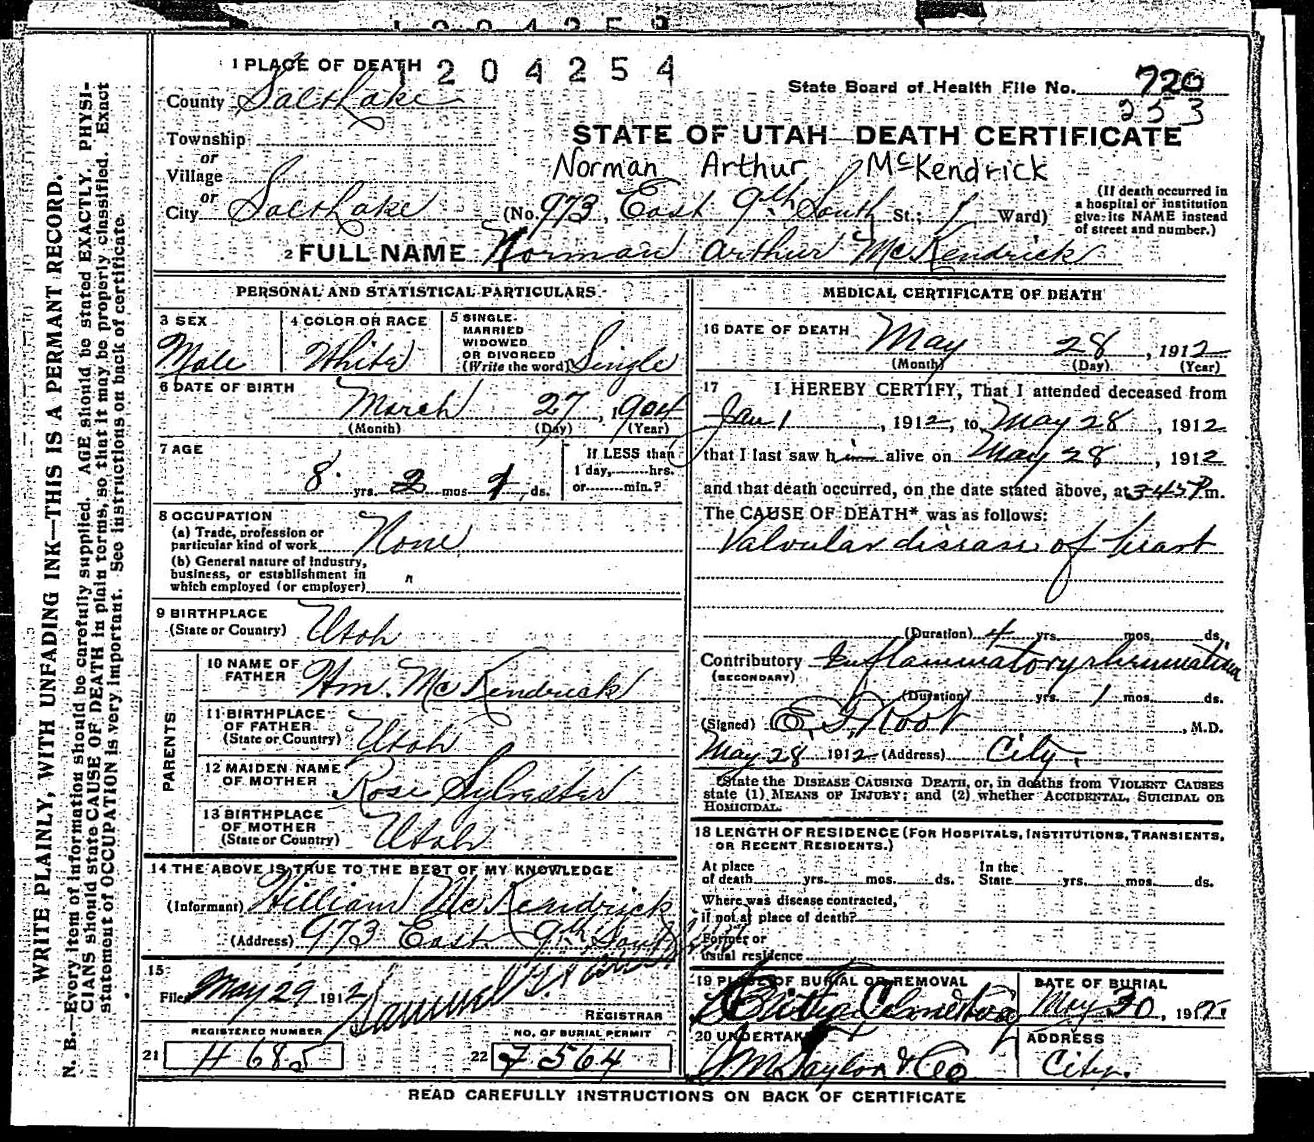 1204254
1 PLACE OF DEATH
State Board of Health File No. 720
253
County Salt Lake
STATE OF UTAH—DEATH CERTIFICATE
Township
or
Village
or
Norman Arthur McKendrick
City Salt Lake (No. 973, East 9th South St.; 1 Ward)
(If death occurred in
a hospital or institution
give its NAME instead
of street and number.)
2 FULL NAME Norman Arthur McKendrick
PERSONAL AND STATISTICAL PARTICULARS
3 SEX
Male
4 COLOR OR RACE
White
5 SINGLE
MARRIED
WIDOWED
OR DIVORCED
(Write the word) Single
6 DATE OF BIRTH
March 27, 1904
(Month) (Day) (Year)
7 AGE
8 yrs. 2 mos 1 ds.
If LESS than
1 day, hrs.
or min.?
8 OCCUPATION
(a) Trade, profession or
particular kind of work None
(b) General nature of industry,
business, or establishment in
which employed (or employer) "
9 BIRTHPLACE
(State or Country) Utah
PARENTS
10 NAME OF
FATHER Wm. McKendrick
11 BIRTHPLACE
OF FATHER
(State or Country) Utah
12 MAIDEN NAME
OF MOTHER Rose Sylvester
13 BIRTHPLACE
OF MOTHER
(State or Country) Utah
14 THE ABOVE IS TRUE TO THE BEST OF MY KNOWLEDGE
(Informant) William McKendrick
(Address) 973 East 9th South
15
Filed May 29 1912 Samuel G.
REGISTRAR
REGISTERED NUMBER
21 H 685
NO. OF BURIAL PERMIT
22 7564
MEDICAL CERTIFICATE OF DEATH
16 DATE OF DEATH
May 28, 1912
(Month) (Day) (Year)
17 I HEREBY CERTIFY, That I attended deceased from
Jan 1, 1912, to May 28, 1912
that I last saw him alive on May 28, 1912
and that death occurred, on the date stated above, at 3:45 P m.
The CAUSE OF DEATH* was as follows:
Valvular disease of heart
(Duration) 4 yrs. mos. ds.
Contributory Inflammatory rheumatism
(SECONDARY)
(Duration) yrs. 1 mos. ds.
(Signed) E. F. Root, M.D.
May 28 1912 (Address) City.
*State the DISEASE CAUSING DEATH, or, in deaths from VIOLENT CAUSES
state (1) MEANS OF INJURY; and (2) whether ACCIDENTAL, SUICIDAL OR
HOMICIDAL.
18 LENGTH OF RESIDENCE (FOR HOSPITALS, INSTITUTIONS, TRANSIENTS,
OR RECENT RESIDENTS.)
At place
of death yrs. mos. ds.
In the
State yrs. mos. ds.
Where was disease contracted,
if not at place of death?
Former or
usual residence
19 PLACE OF BURIAL OR REMOVAL
City Cemetery
DATE OF BURIAL
May 30, 1912
20 UNDERTAKER
Taylor & Co
ADDRESS
City.
READ CAREFULLY INSTRUCTIONS ON BACK OF CERTIFICATE
WRITE PLAINLY, WITH UNFADING INK—THIS IS A PERMANENT RECORD.
N. B.—Every item of information should be carefully supplied. AGE should be stated EXACTLY. PHYSI-
CIANS should state CAUSE OF DEATH in plain terms, so that it may be properly classified. Exact
statement of OCCUPATION is very important. See instructions on back of certificate.